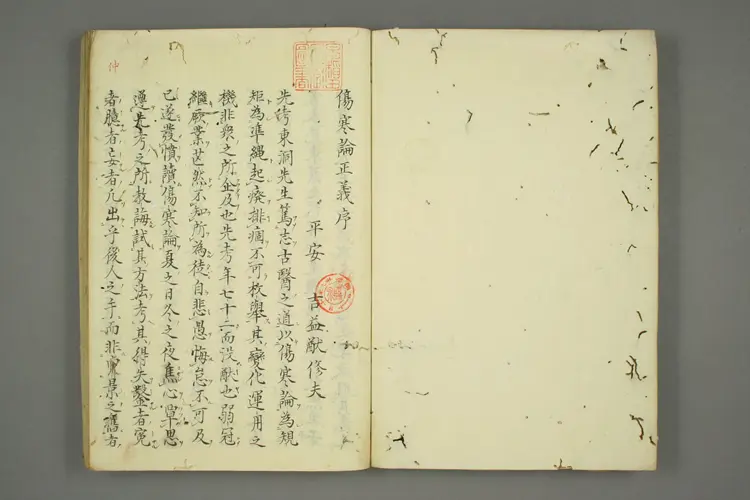 傷寒論正義序
平安 吉益猷修夫
先考東洞先生篤志古醫之道以傷寒論為規
矩為準繩起廢排痼不可枚舉其變化運用之
機非衆之所企及也先考年七十二而没猷也弱冠
繼厥業茫然不知所為徒自悲愚悔怠不可及
已遂發憤讀傷寒論夏之日冬之夜焦心單思
遵先考之所教誨試其方法考其得失鑿者寃
者臆者妄者凡出乎後人之手而非景之舊者
仲